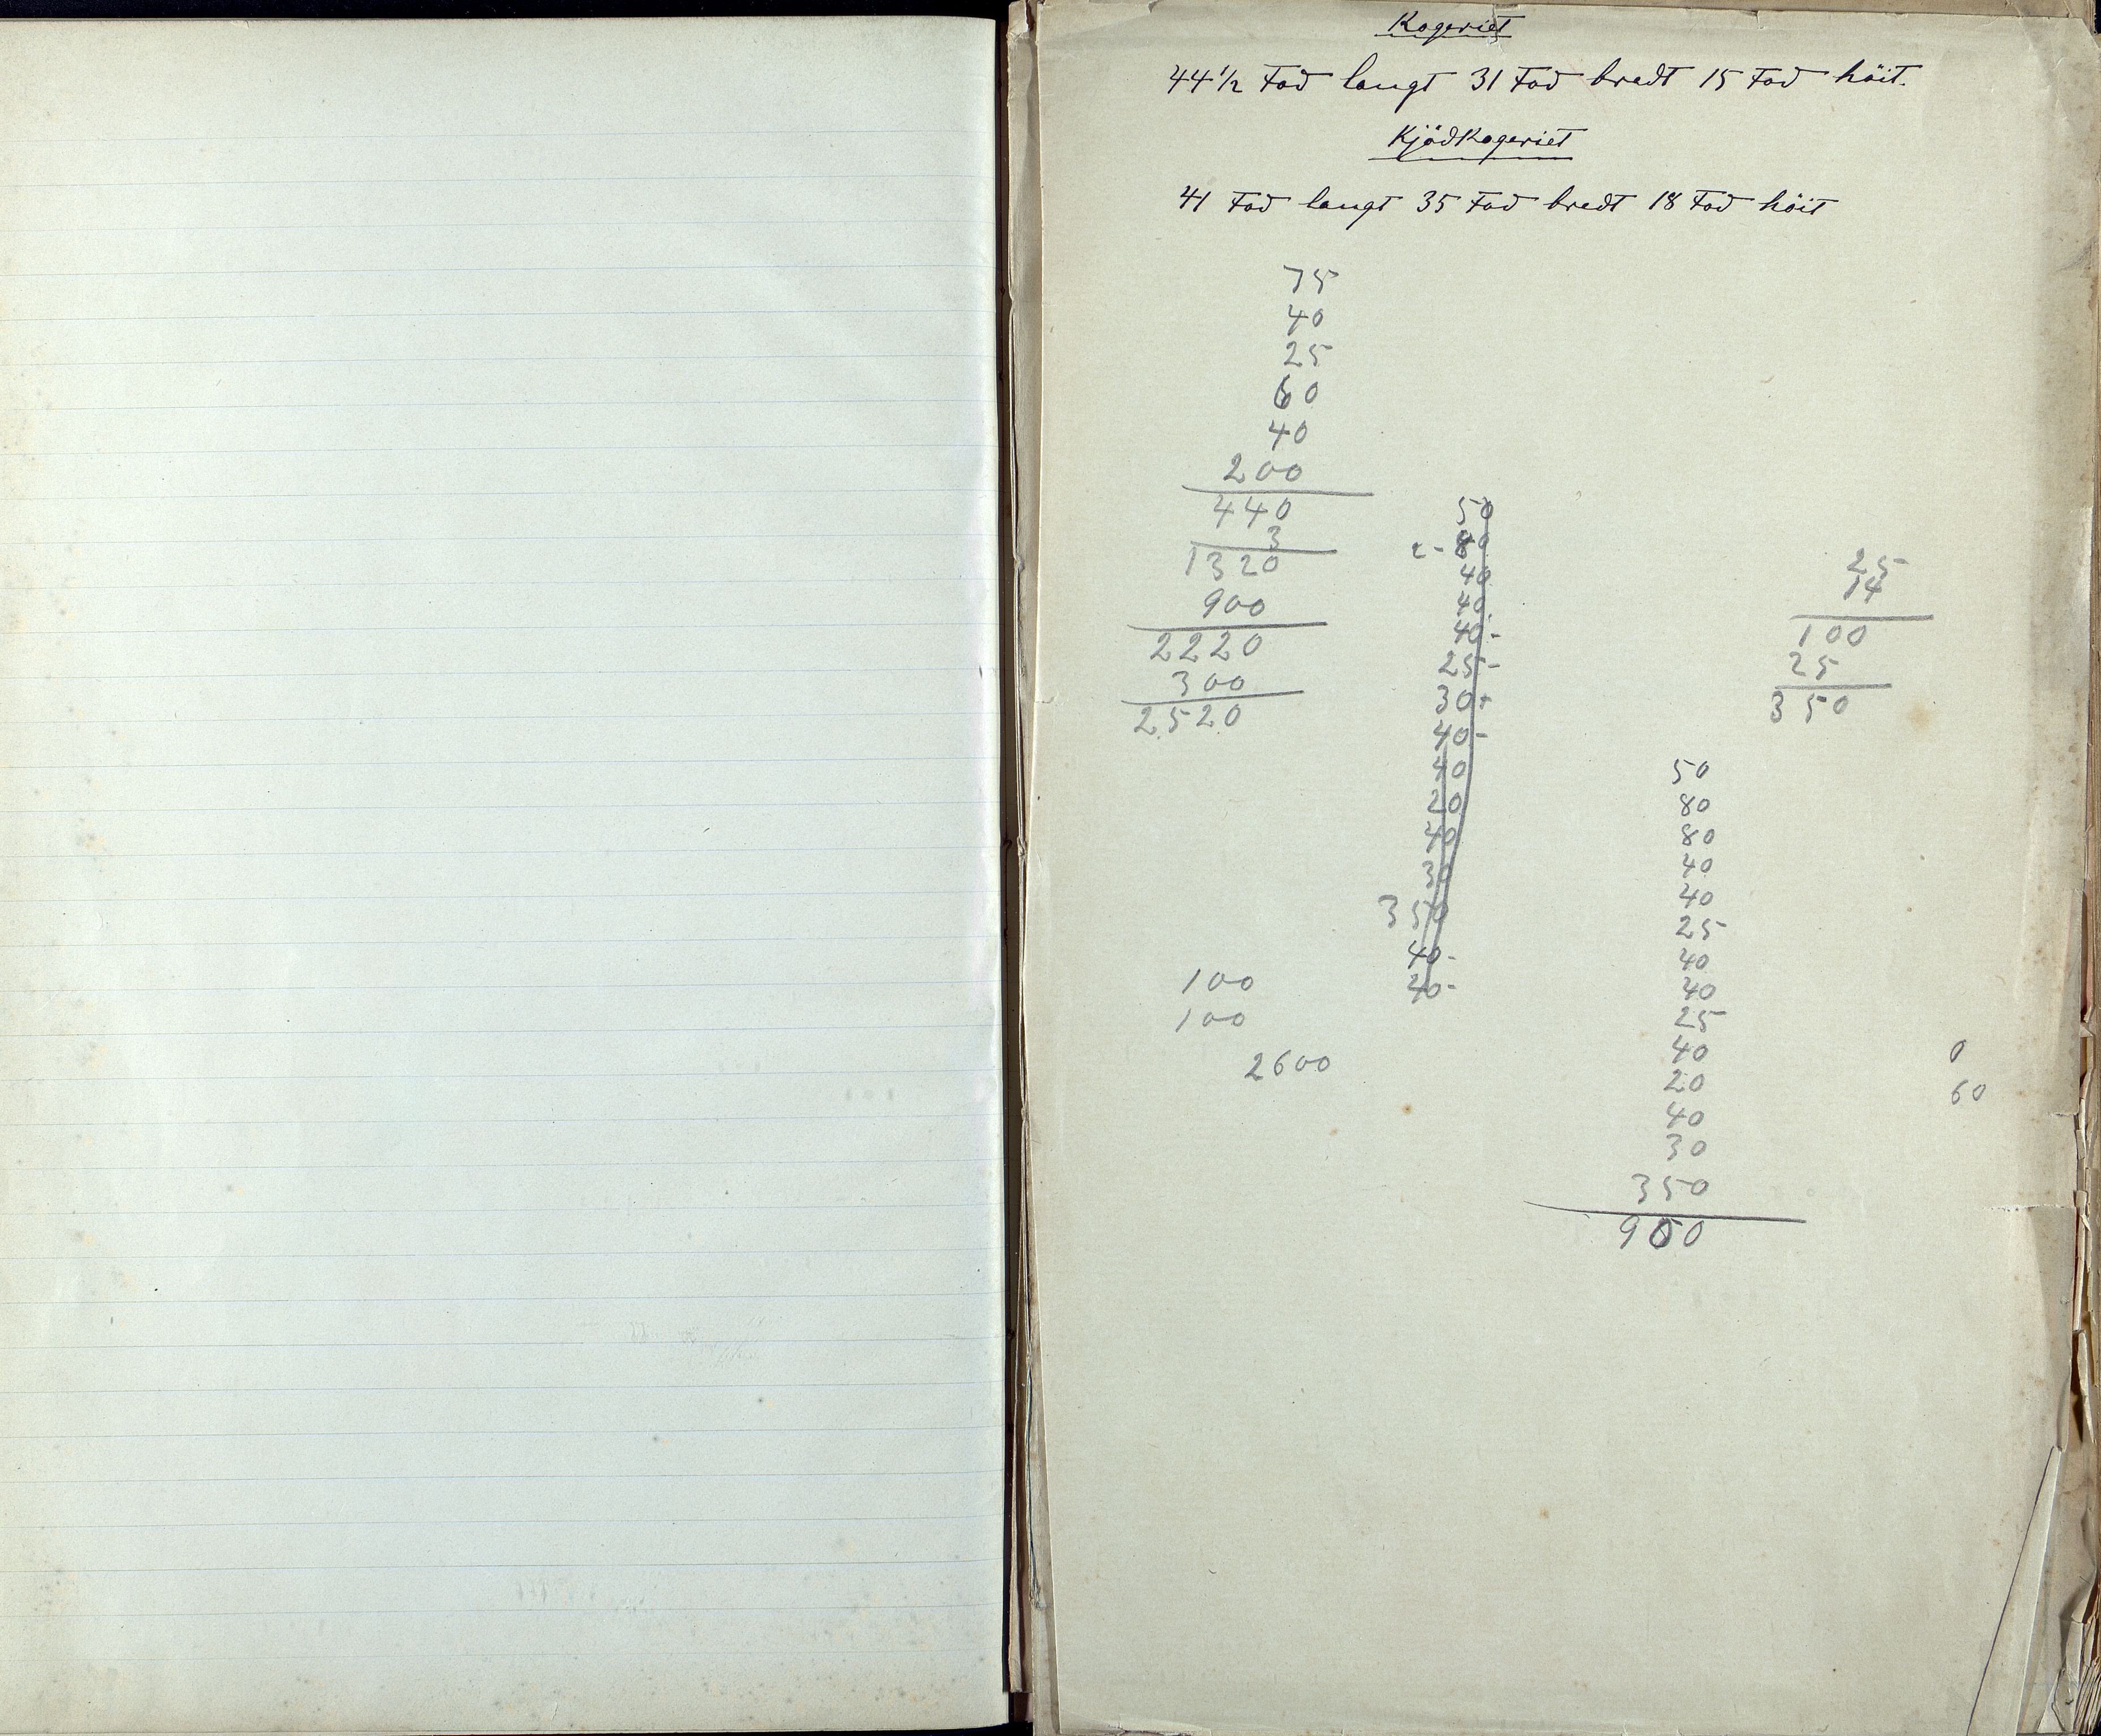 Kogeriet
44 1/2 Fod langt 31 Fod bredt 15 Fod höit.
Kjödkogeriet
41 Fod langt 35 Fod bredt 18 Fod höit
75
40
25
60
40
200
440
3
1320
900
2220
300
2520
100
100
2600
50
40
40
40
25-
30
40-
40
20
40
30
350
40-
20-
25
14
100
25
350
50
80
80
40
40
25
40
40
25
40
20
40
30
350
900
0
60